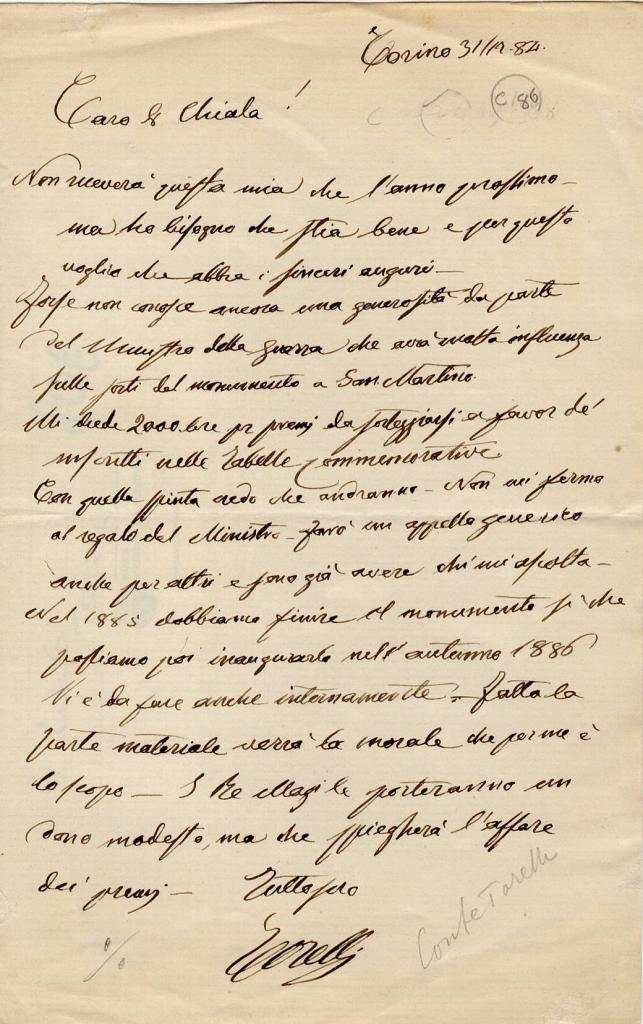 Torino 31/12.84.
C 186
Caro Sr Chiala!
Non riceverà questa mia che l'anno prossimo –
ma ho bisogno che stia bene e per questo
voglio che abbia i sinceri auguri –
Forse non conosce ancora una generosità da parte
del Ministro della guerra che avrà molta influenza
sulle sorti del monumento a San Martino.
Mi diede 2000 lire pr premj da sorteggiarsi a favor de'
inscritti nelle Tabelle commemorative
Con quella spinta credo che andranno – Non mi fermo
al regalo del Ministro – farò un appello generico
anche per altri e sono già avere chi mi ascolta –
Nel 1885 dobbiamo finire il monumento sì che
possiamo poi inaugurarlo nell'autunno 1886
Vi è da fare anche internamente – Fatta la
parte materiale verrà la morale che per me è
lo scopo – I Re Magi le porteranno un
dono modesto, ma che spiegherà l'affare
dei premj – Tutto suo
Torelli
Conte Torelli
%